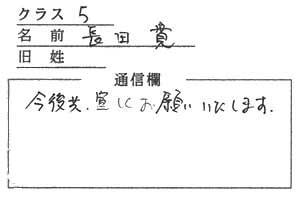 クラス 5
名前 長田寛
旧姓
通信欄
今後共、宜しくお願いいたします.